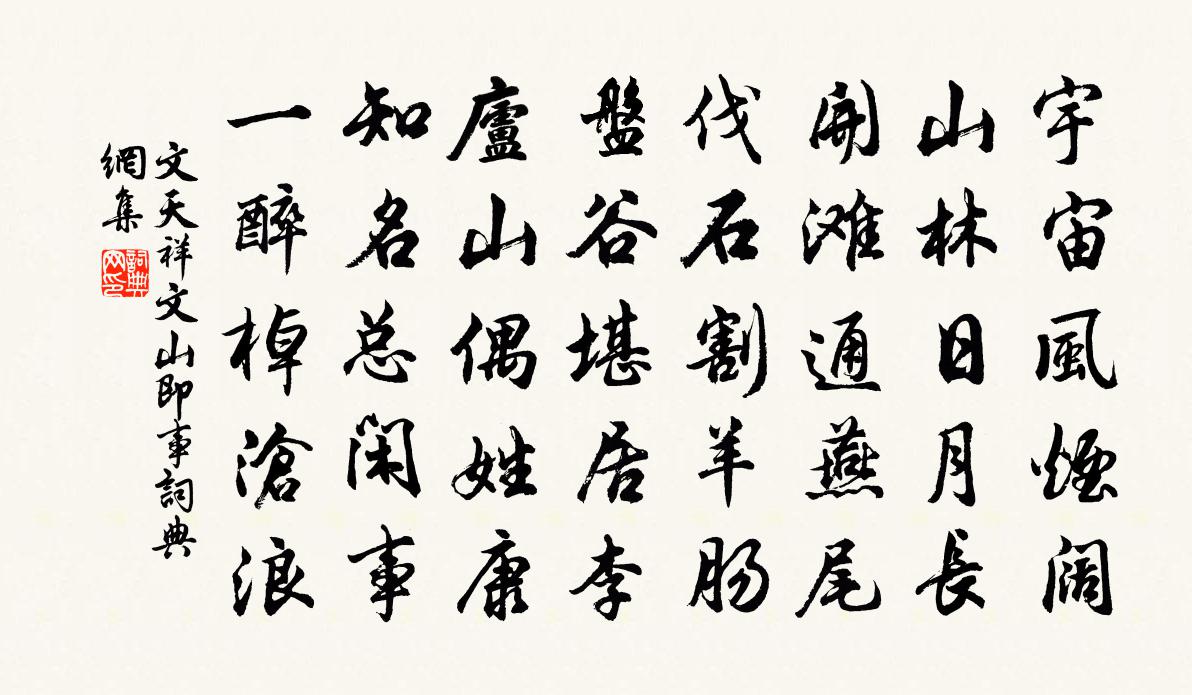 宇宙風煙阔
山林日月長
開滩通燕尾
伐石割羊肠
盤谷堪居李
廬山偶姓康
知名总闲事
一醉棹滄浪
文天祥文山即事詞典
網集
詞典
网印